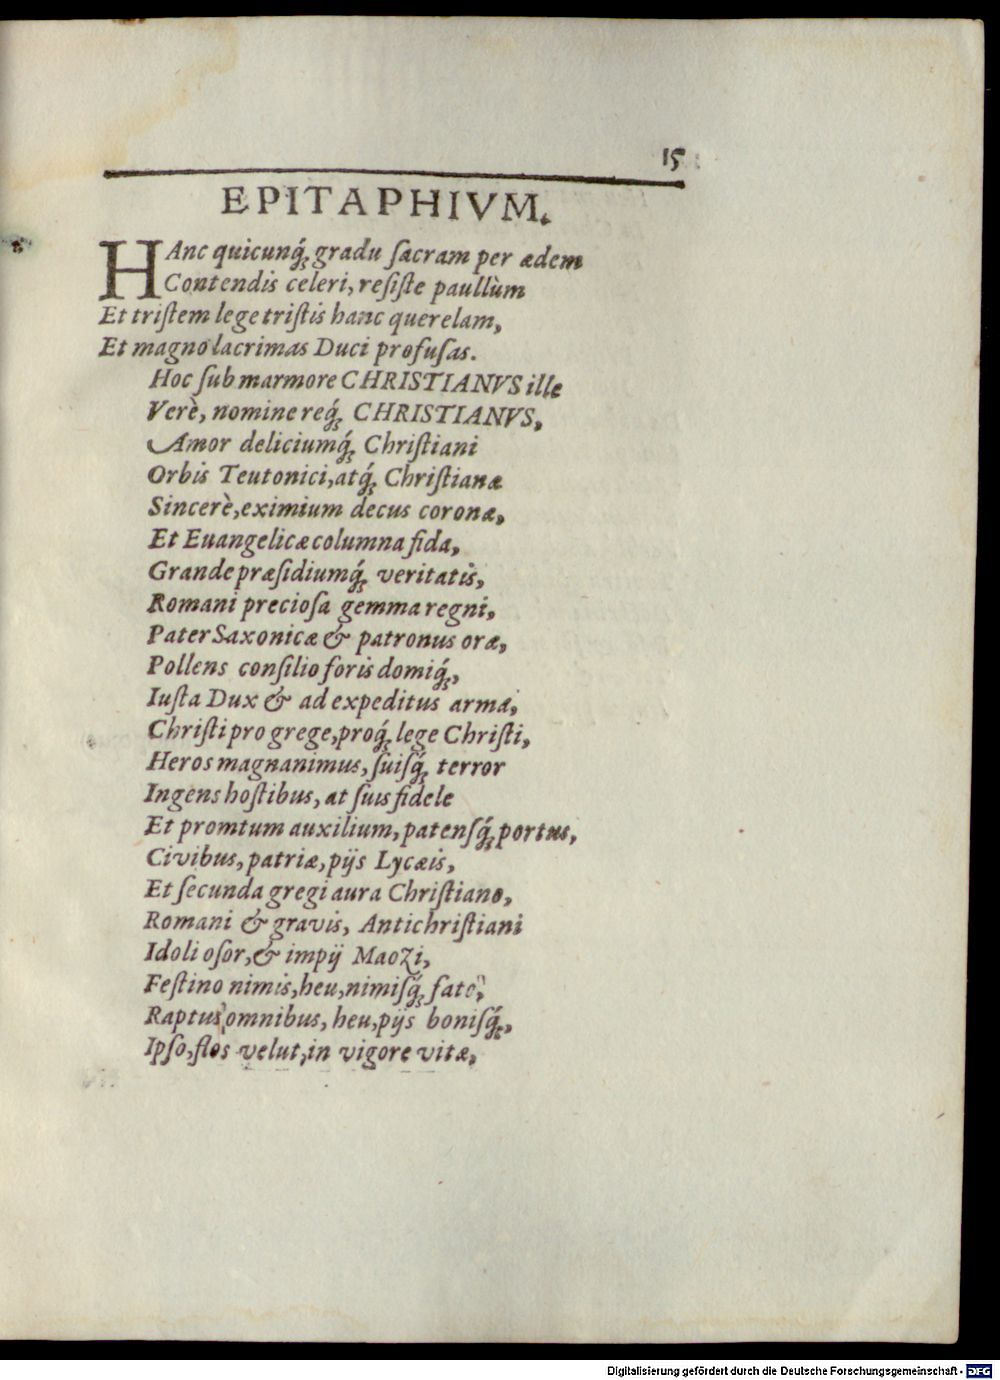 15
EPITAPHIVM.
HAnc quicunq́; gradu ſacram per ædem
Contendis celeri, reſiſte paullùm
Et triſtem lege triſtis hanc querelam,
Et magno lacrimas Duci profuſas.
Hoc ſub marmore CHRISTIANVS ille
Verè, nomine req́; CHRISTIANVS,
Amor deliciumq́; Chriſtiani
Orbis Teutonici, atq́; Chriſtianæ
Sincerè, eximium decus coronæ,
Et Euangelicæ columna fida,
Grande præſidiumq́; veritatis,
Romani precioſa gemma regni,
Pater Saxonicæ & patronus oræ,
Pollens conſilio foris domiq́;,
Iuſta Dux & ad expeditus arma,
Chriſti pro grege, proq́; lege Chriſti,
Heros magnanimus, ſuiſq́; terror
Ingens hoſtibus, at ſuis fidele
Et promtum auxilium, patenſq́; portus,
Civibus, patriæ, pijs Lycæis,
Et ſecunda gregi aura Chriſtiano,
Romani & gravis, Antichriſtiani
Idoli oſor, & impij Maozi,
Feſtino nimis, heu, nimiſq́; fato,
Raptus omnibus, heu, pijs boniſq́;,
Ipſo, flos velut, in vigore vitæ,
Digitalisierung gefördert durch die Deutsche Forschungsgemeinschaft - DFG